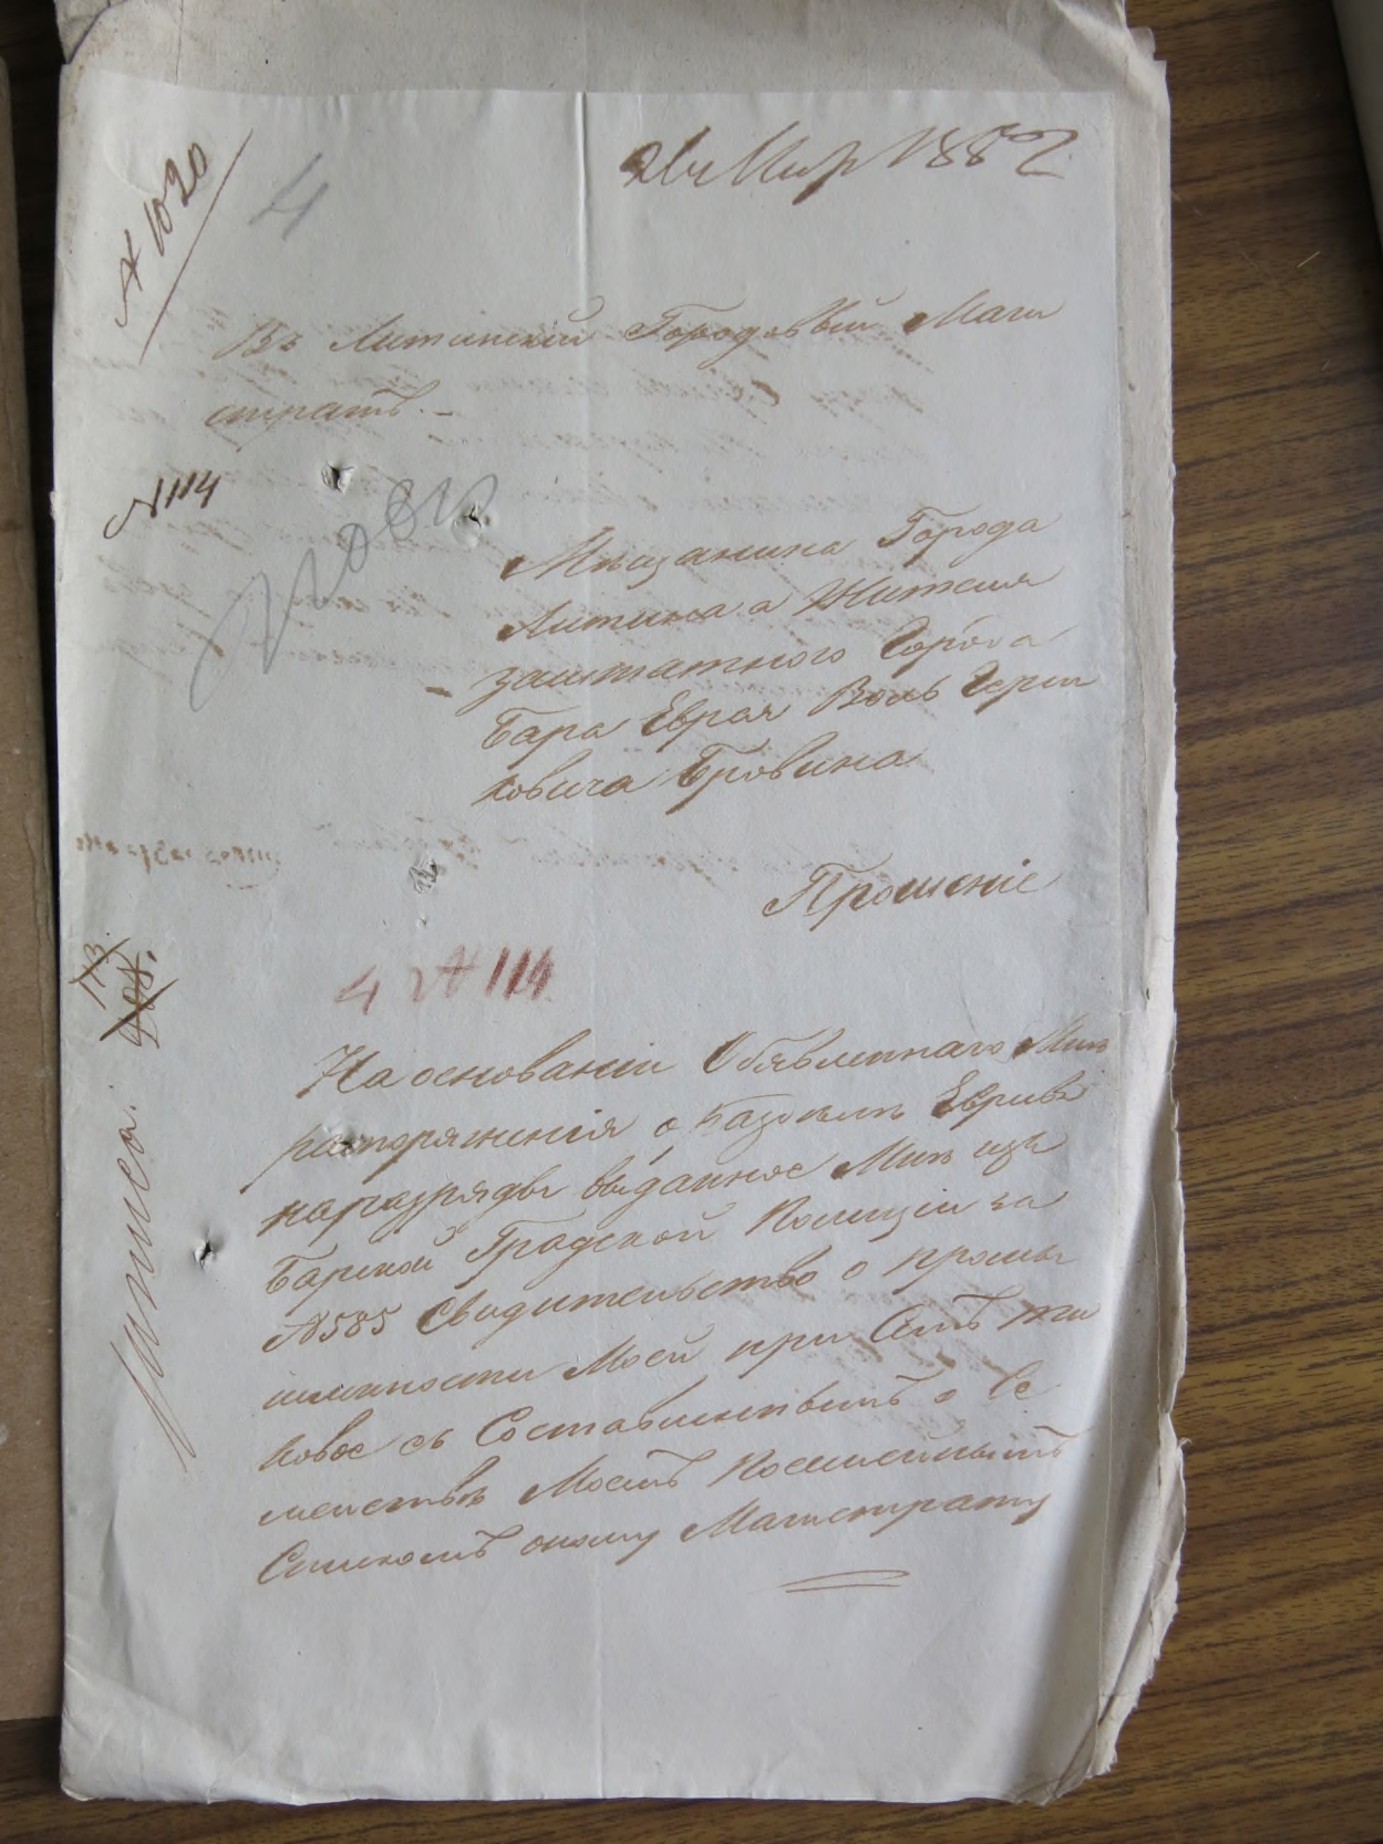 № 1020
4
1882
Въ Литинскій Городовый Маги
стратъ. –
№ 114
Мѣщанина Города
Литина а Жителя
заштатного Города
Бара Еврея Воль Герш
ковича Бровина
Прошеніе
173
4 № 114
На основаніи Объявленнаго Мнѣ
распоряженія о разборѣ Евреевъ
на разряды выданное Мнѣ изъ
Барской Градской Полиціи за
№ 585 Свидетельство о промы
шленности Моей при Семъ та
ковое съ Составленнымъ о Се
мействѣ Моемъ Посемейнымъ
Спискомъ оному Магистрату